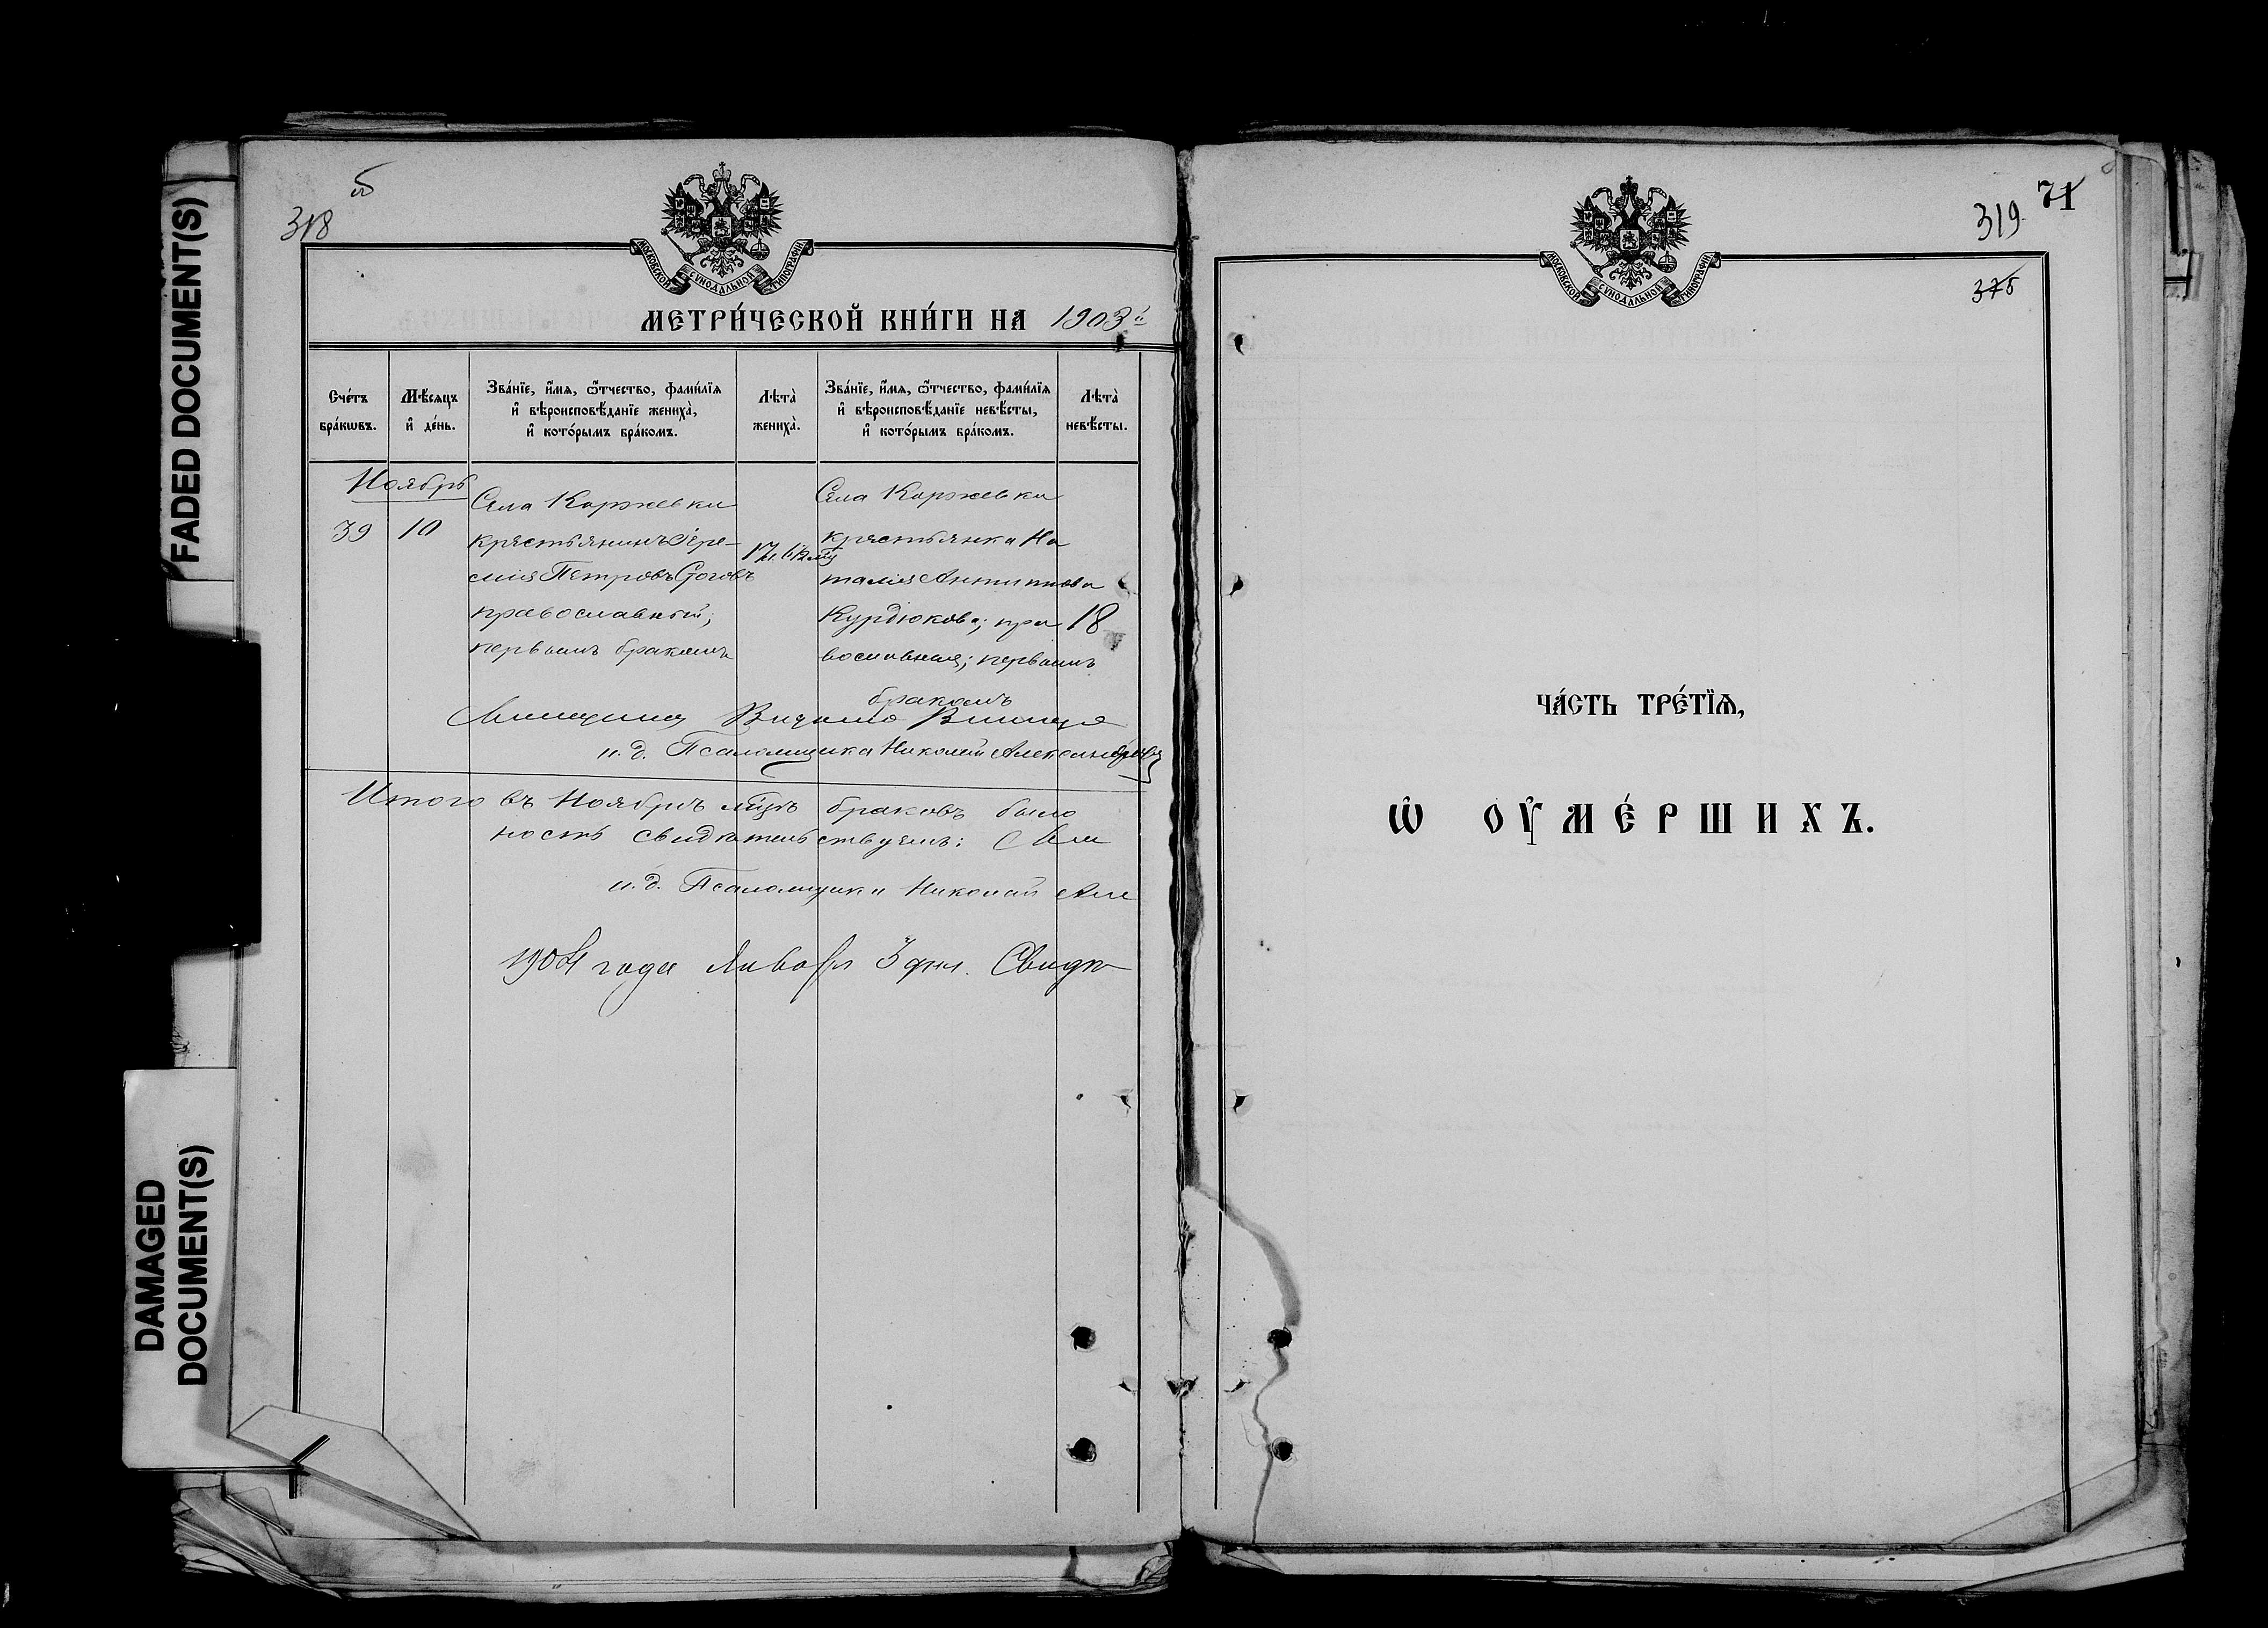 FADED DOCUMENT(S)
DAMAGED
DOCUMENT(S)
318
МОСКОВСКОЙ СѴНОДАЛЬНОЙ ТИПОГРАФІИ
МЕТРИ́ЧЕСКОЙ КНИ́ГИ НА 1903й
Сче́тъ бра́кѡвъ.
Мѣ́сяцъ и҆ де́нь.
Зва́нїе, и҆́мя, ѻ҆́тчество, фами́лїя
и҆ вѣроисповѣ́данїе жениха̀,
и҆ кото́рымъ бра́комъ.
Лѣта̀ жениха̀.
Зва́нїе, и҆́мя, ѻ҆́тчество, фами́лїя
и҆ вѣроисповѣ́данїе невѣ́сты,
и҆ кото́рымъ бра́комъ.
Лѣта̀ невѣ́сты.
Ноябрь
39
10
Села Коржевки
крестьянинъ Іере-
мія Петровъ Стоговъ
православный;
первымъ бракомъ
Села Коржевки
крестьянка На
талія Антипова
Курдюкова; пра
вославная; первымъ
бракомъ
18
и. д. Псаломщика Николай Александровъ
Итого въ Ноябрѣ мцѣ браковъ было
ность свидѣтельствуемъ:
и. д. Псаломщика Николай Але
1904 года Января 3 дня. Свидѣ
319
71
МОСКОВСКОЙ СѴНОДАЛЬНОЙ ТИПОГРАФІИ
ЧА́СТЬ ТРЕ́ТЇѦ,
Ѡ҆ ОУ҆МЕ́РШИХЪ.